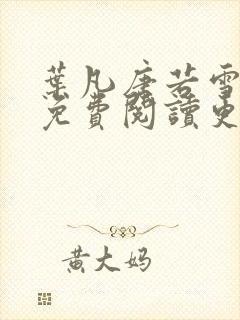 葉凡唐若雪
免費閱讀更
黃大妈